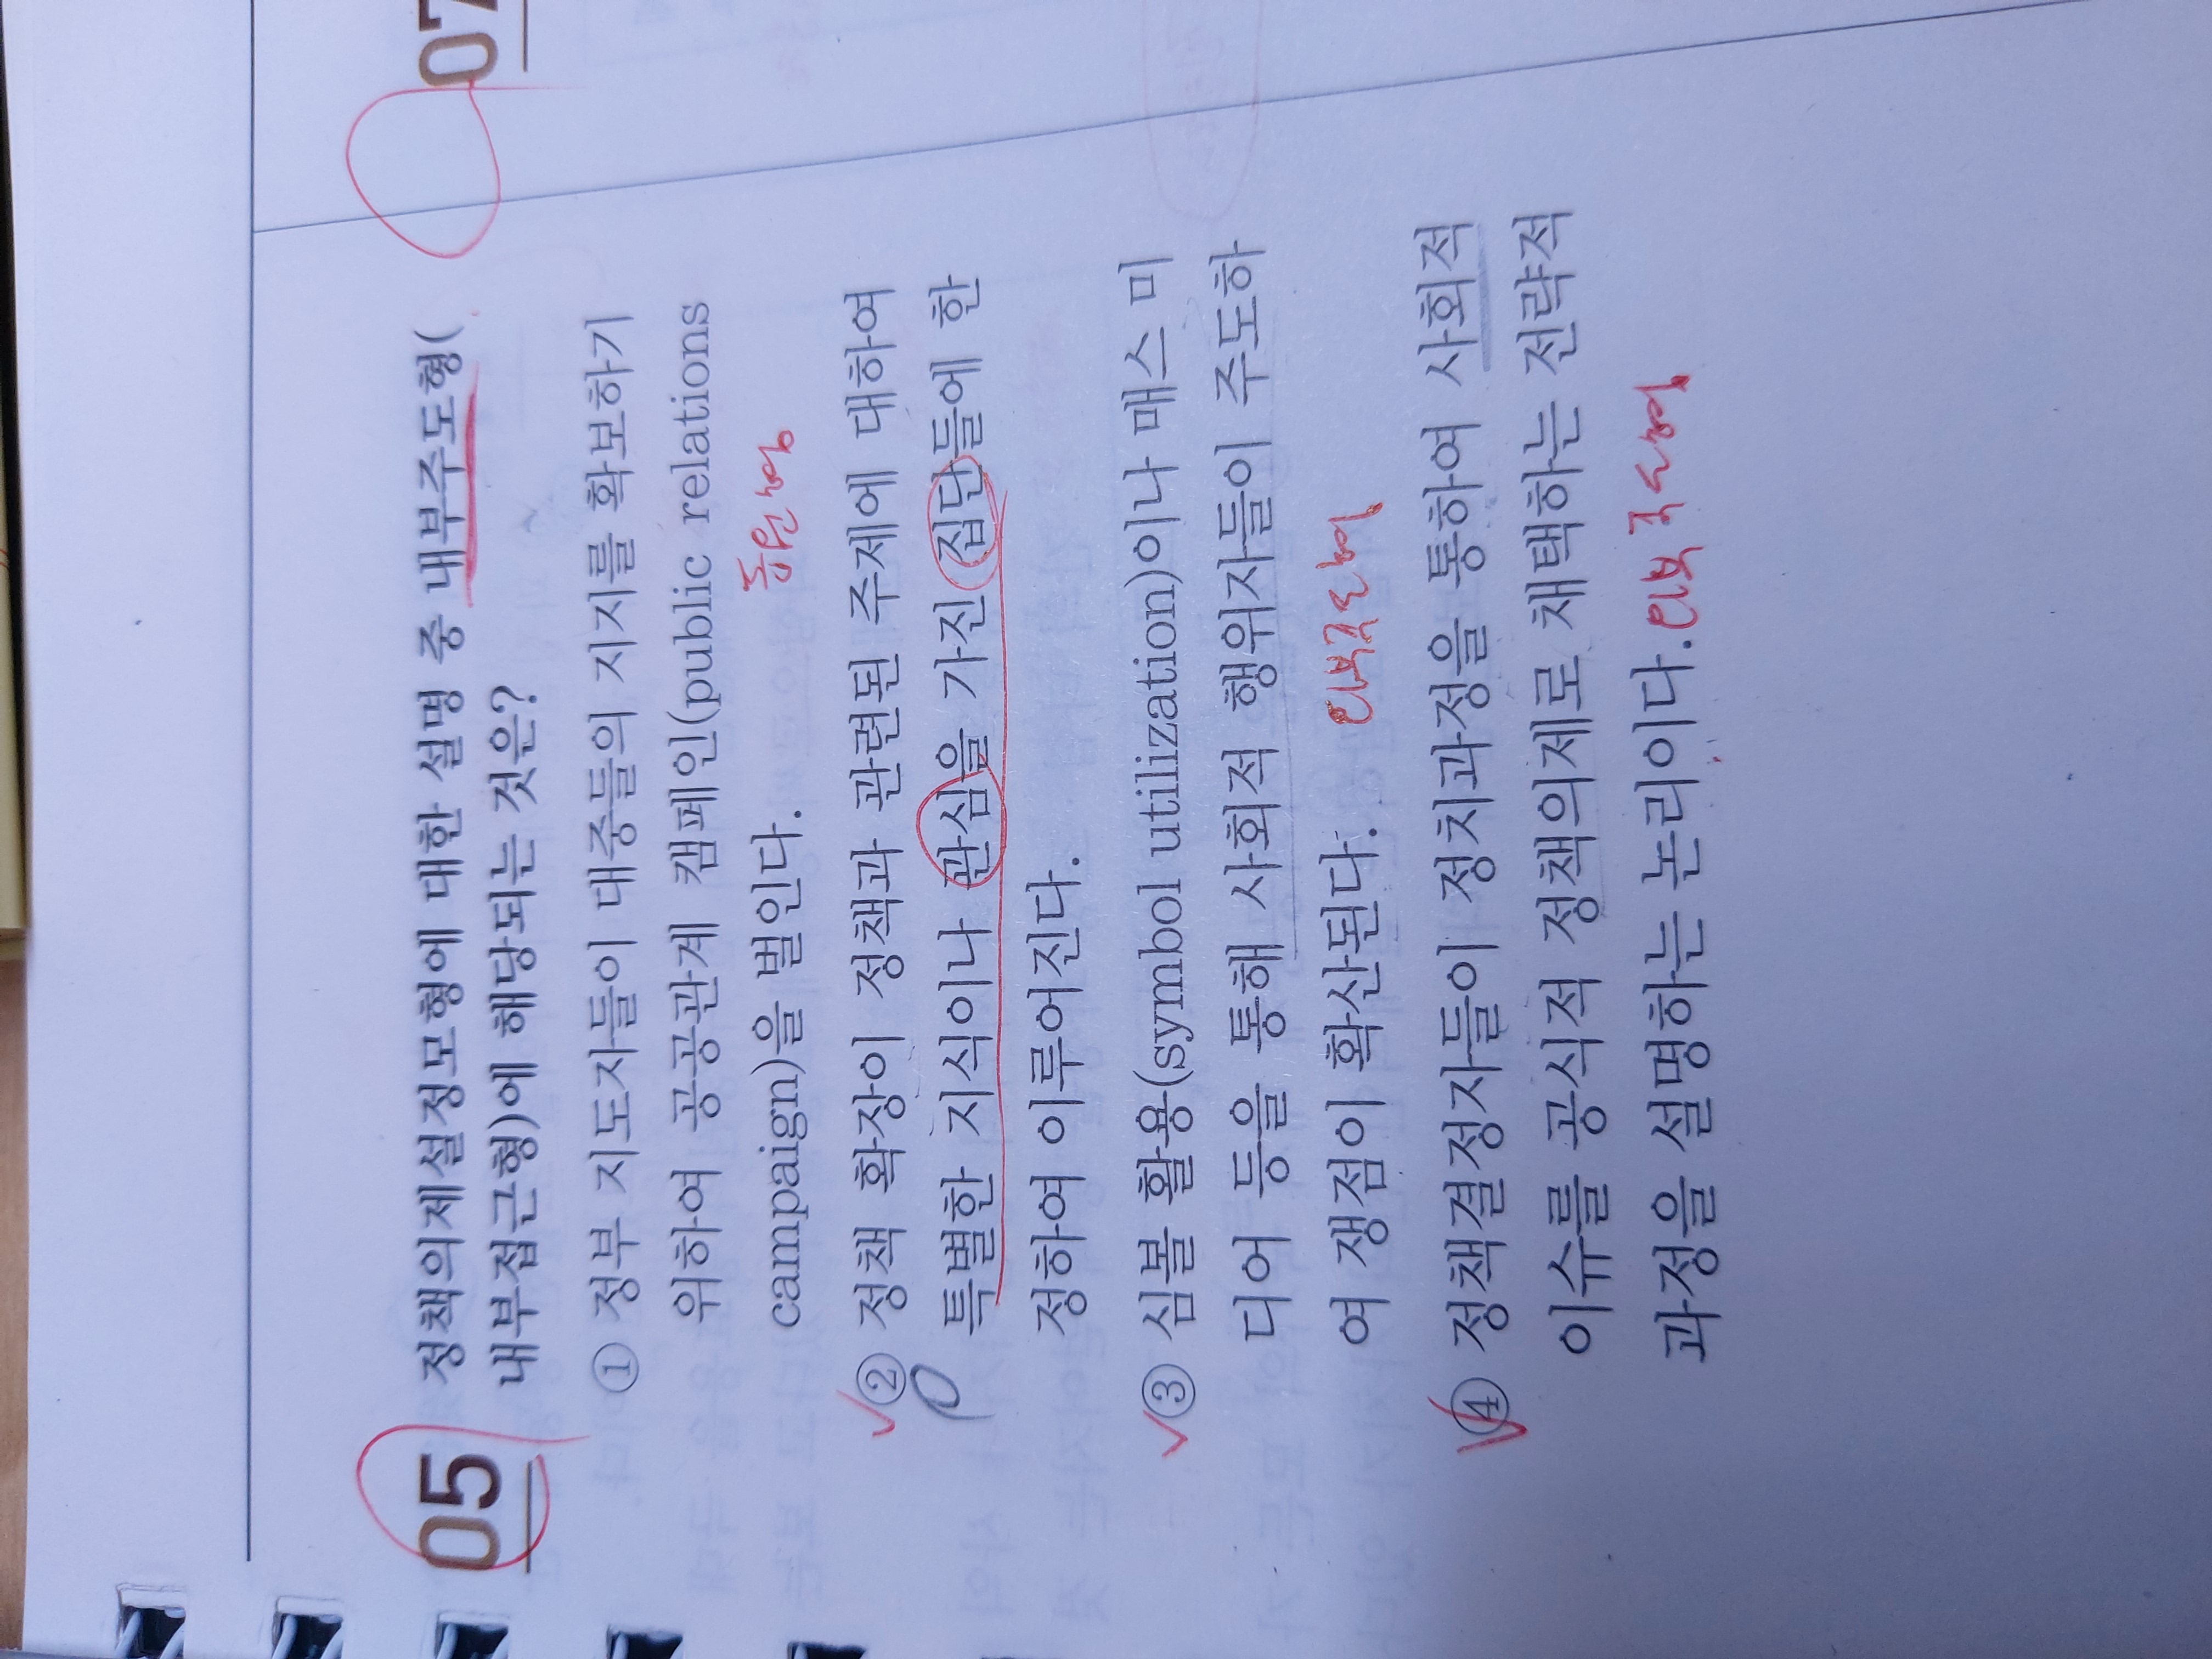 05
정책의제설정모형에 대한 설명 중 내부주도형(
내부접근형)에 해당되는 것은?
① 정부 지도자들이 대중들의 지지를 확보하기
위하여 공공관계 캠페인(public relations
campaign)을 벌인다.
동원형
② 정책 확장이 정책과 관련된 주제에 대하여
특별한 지식이나 관심을 가진 집단들에 한
정하여 이루어진다.
③ 심볼 활용(symbol utilization)이나 매스 미
디어 등을 통해 사회적 행위자들이 주도하
여 쟁점이 확산된다.
외부주도형
④ 정책결정자들이 정치과정을 통하여 사회적
이슈를 공식적 정책의제로 채택하는 전략적
과정을 설명하는 논리이다. 외부주도형
07